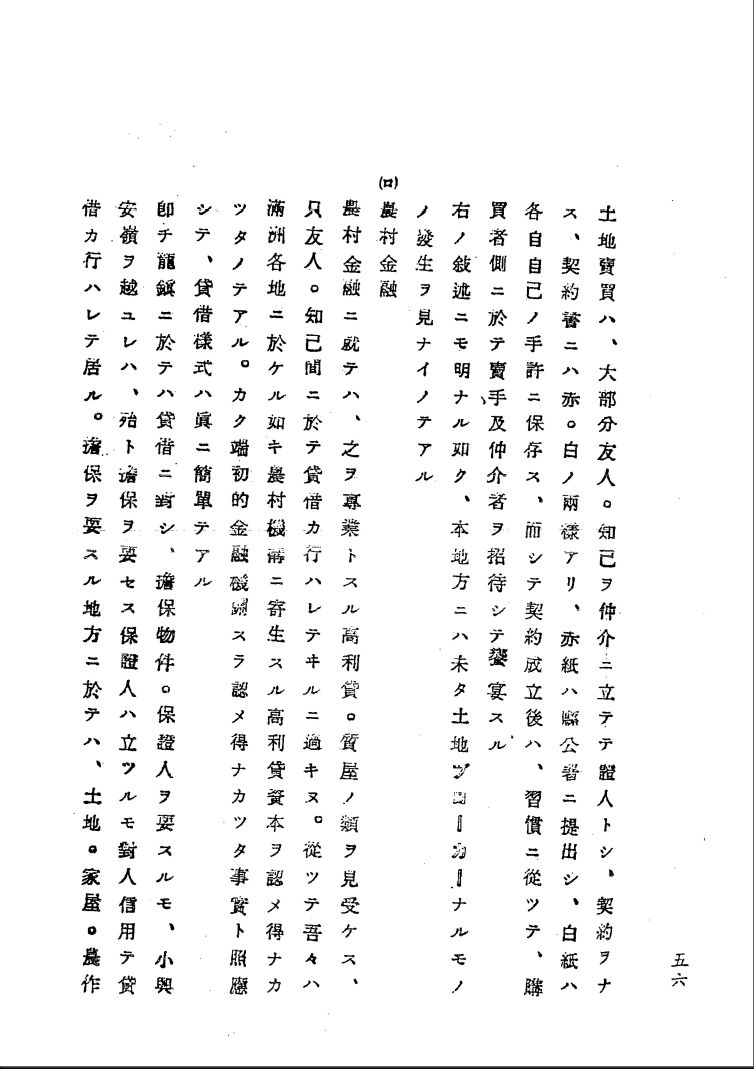 五六
土地賣買ハ、大部分友人。知己ヲ仲介ニ立テテ證人トシ、契約ヲナ
ス、契約書ニハ赤。白ノ兩樣アリ、赤紙ハ縣公署ニ提出シ、白紙ハ
各自自己ノ手許ニ保存ス、而シテ契約成立後ハ、習慣ニ從ツテ、購
買者側ニ於テ賣手及仲介者ヲ招待シテ饗宴スル
右ノ敍述ニモ明ナル如ク、本地方ニハ未タ土地ブローカーナルモノ
ノ發生ヲ見ナイノテアル
(ロ)農村金融
農村金融ニ就テハ、之ヲ專業トスル高利貸。質屋ノ類ヲ見受ケス、
只友人。知己間ニ於テ貸借カ行ハレテヰルニ過キヌ。從ツテ吾々ハ
滿洲各地ニ於ケル如キ農村機構ニ寄生スル高利貸資本ヲ認メ得ナカ
ツタノテアル。カク端初的金融機關スラ認メ得ナカツタ事實ト照應
シテ、貸借樣式ハ眞ニ簡單テアル
卽チ龍鎭ニ於テハ貸借ニ對シ、擔保物件。保證人ヲ要スルモ、小興
安嶺ヲ越ユレハ、殆ト擔保ヲ要セス保證人ハ立ツルモ對人信用テ貸
借カ行ハレテ居ル。擔保ヲ要スル地方ニ於テハ、土地。家屋。農作